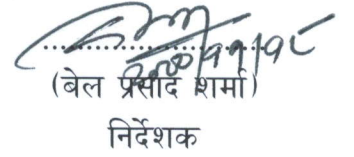 (बेल प्रसाद शर्मा)
निर्देशक